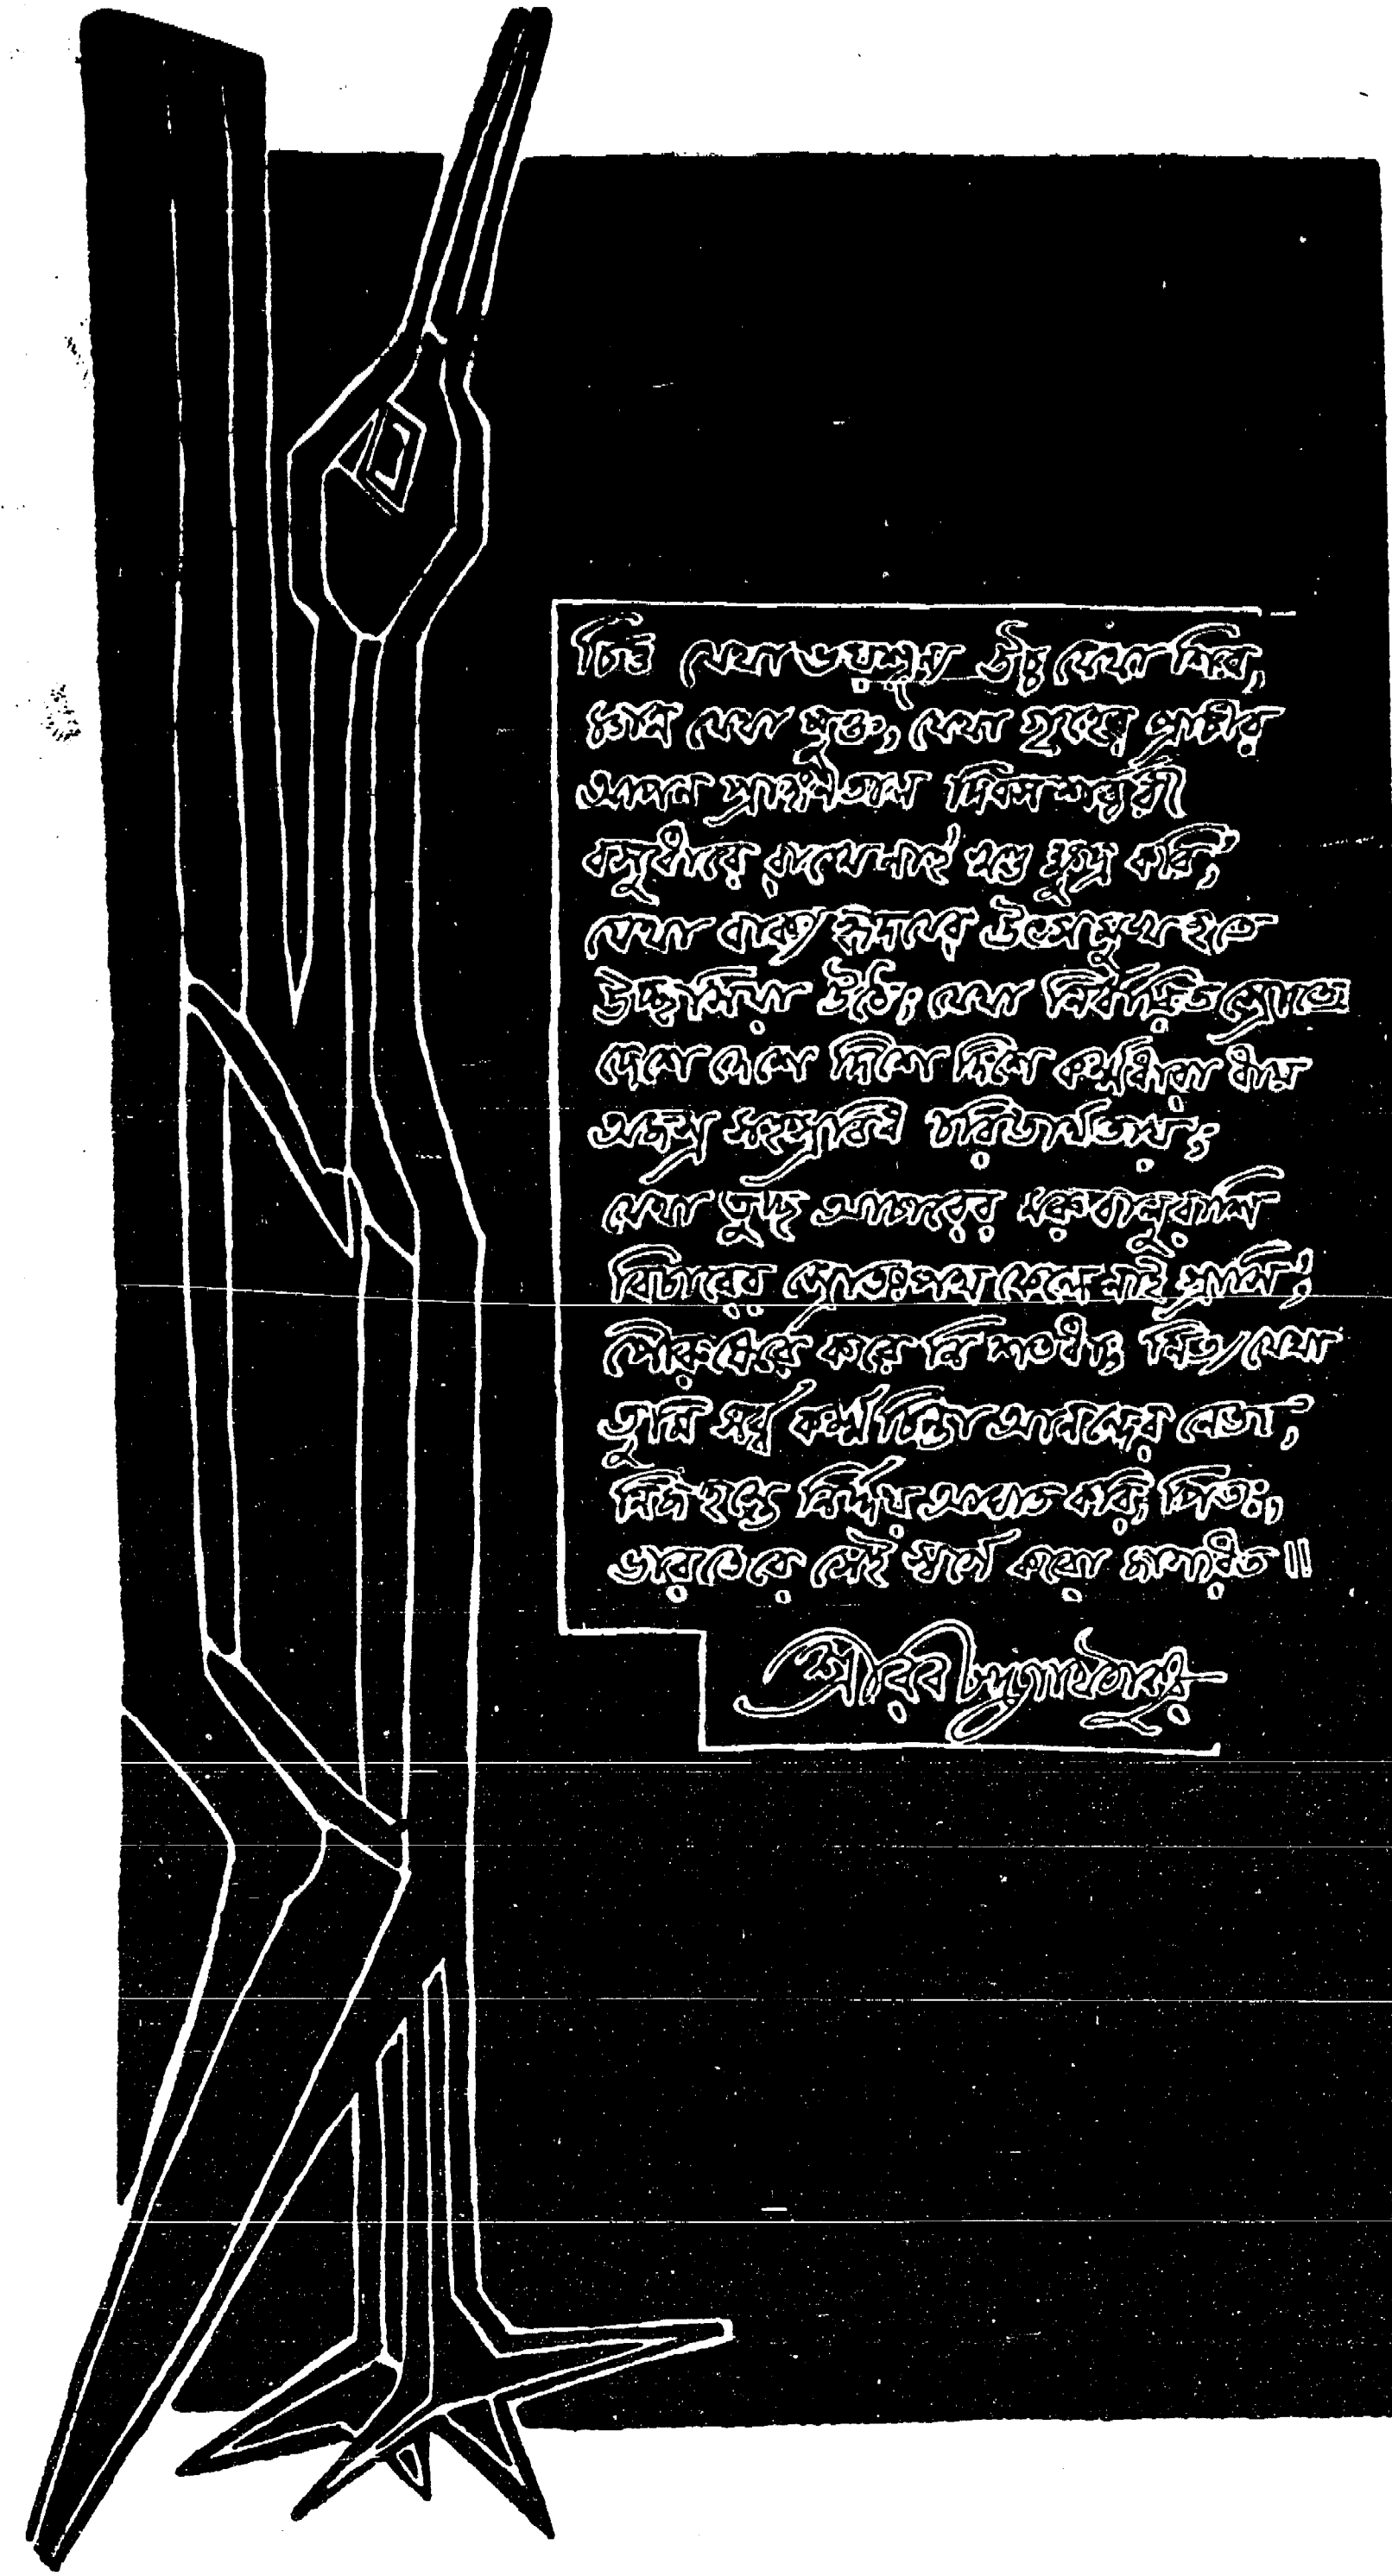 চিত্ত যেথা ভয়শূন্য উচ্চ যেথা শির,
জ্ঞান যেথা মুক্ত, যেথা গৃহের প্রাচীর
আপন প্রাঙ্গণতলে দিবস শর্ব্বরী
বসুধারে রাখে নাই খণ্ড ক্ষুদ্র করি,
যেথা বাক্য হৃদয়ের উৎসমুখ হতে
উচ্ছ্বসিয়া উঠে; যেথা নির্বারিত স্রোতে
দেশে দেশে দিশে দিশে কর্ম্মধারা ধায়
অজস্র সহস্রবিধ চরিতার্থতায়;
যেথা তুচ্ছ আচারের মরুবালুরাশি
বিচারের স্রোতঃপথ ফেলে নাই গ্রাসি;
পৌরুষেরে করে নি শতধা; নিত্য যেথা
তুমি সর্ব্ব কর্ম্ম চিন্তা আনন্দের নেতা,
নিজ হস্তে নির্দ্দয় আঘাত করি, পিতঃ,
ভারতেরে সেই স্বর্গে করো জাগরিত॥
শ্রীরবীন্দ্রনাথ ঠাকুর